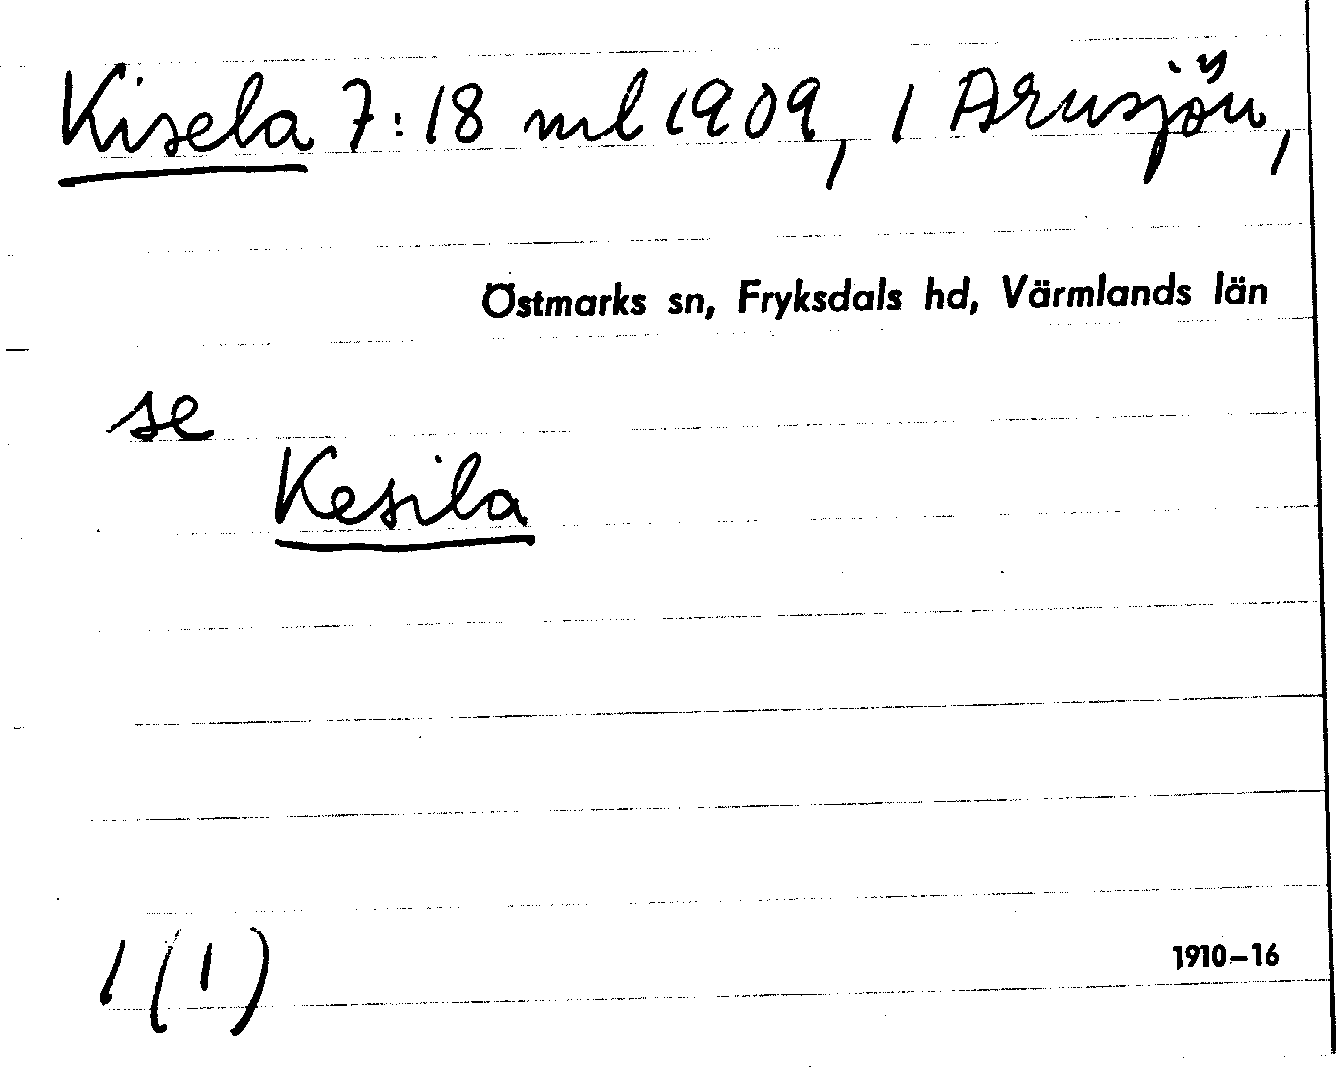 Kisela 7:18 ml 1909, 1 Arnsjön,
Östmarks sn, Fryksdals hd, Värmlands län
se
Kesila
1 (1)
1910–16